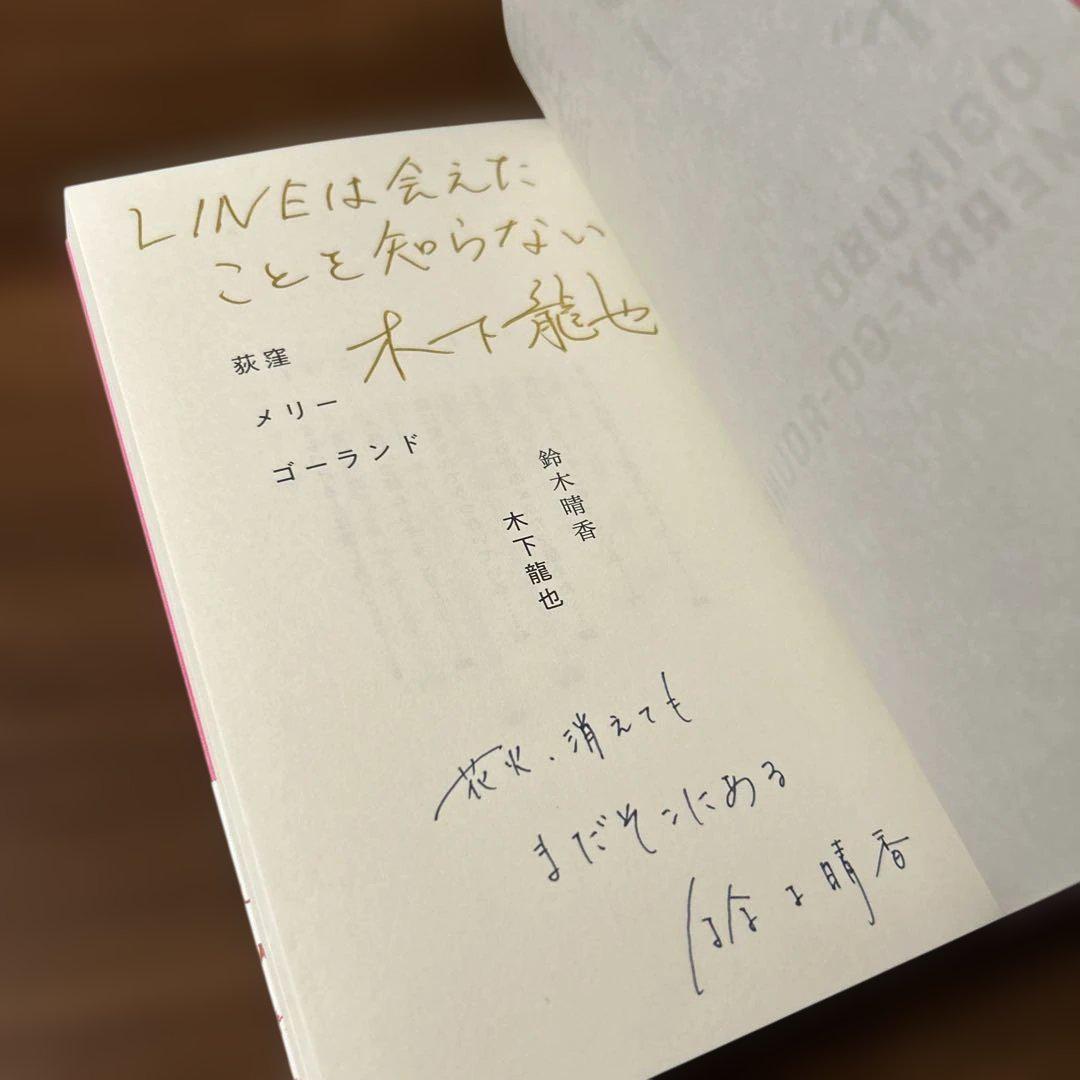 LINEは会えた
ことを知らない
木下龍也
荻窪
メリー
ゴーランド
鈴木晴香
木下龍也
花火、消えても
まだそこにある
鈴木晴香
OGIKUBO
MERRY-GO-ROUND